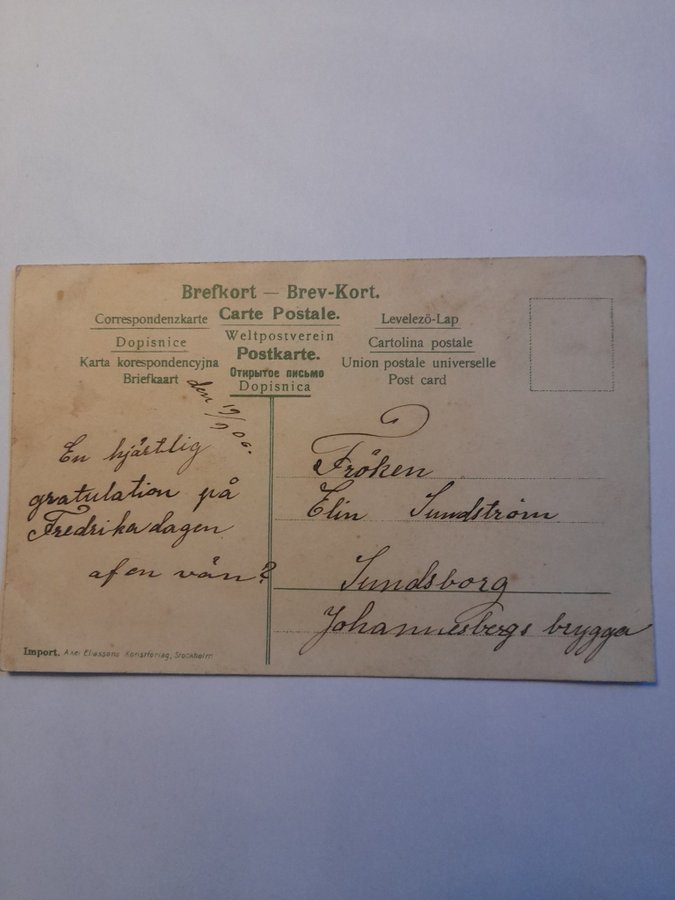 Brefkort — Brev-Kort.
Correspondenzkarte Carte Postale. Levelezö-Lap
Dopisnice Weltpostverein Cartolina postale
Karta korespondencyjna Postkarte. Union postale universelle
Briefkaart Открытое письмо Post card
Dopisnica
den 19/9 06.
En hjärtlig
gratulation på
Fredrika dagen
af en vän?
Fröken
Elin Sundström
Sundsborg
Johannesbergs brygga
Import. Axel Eliassons Konstförlag, Stockholm